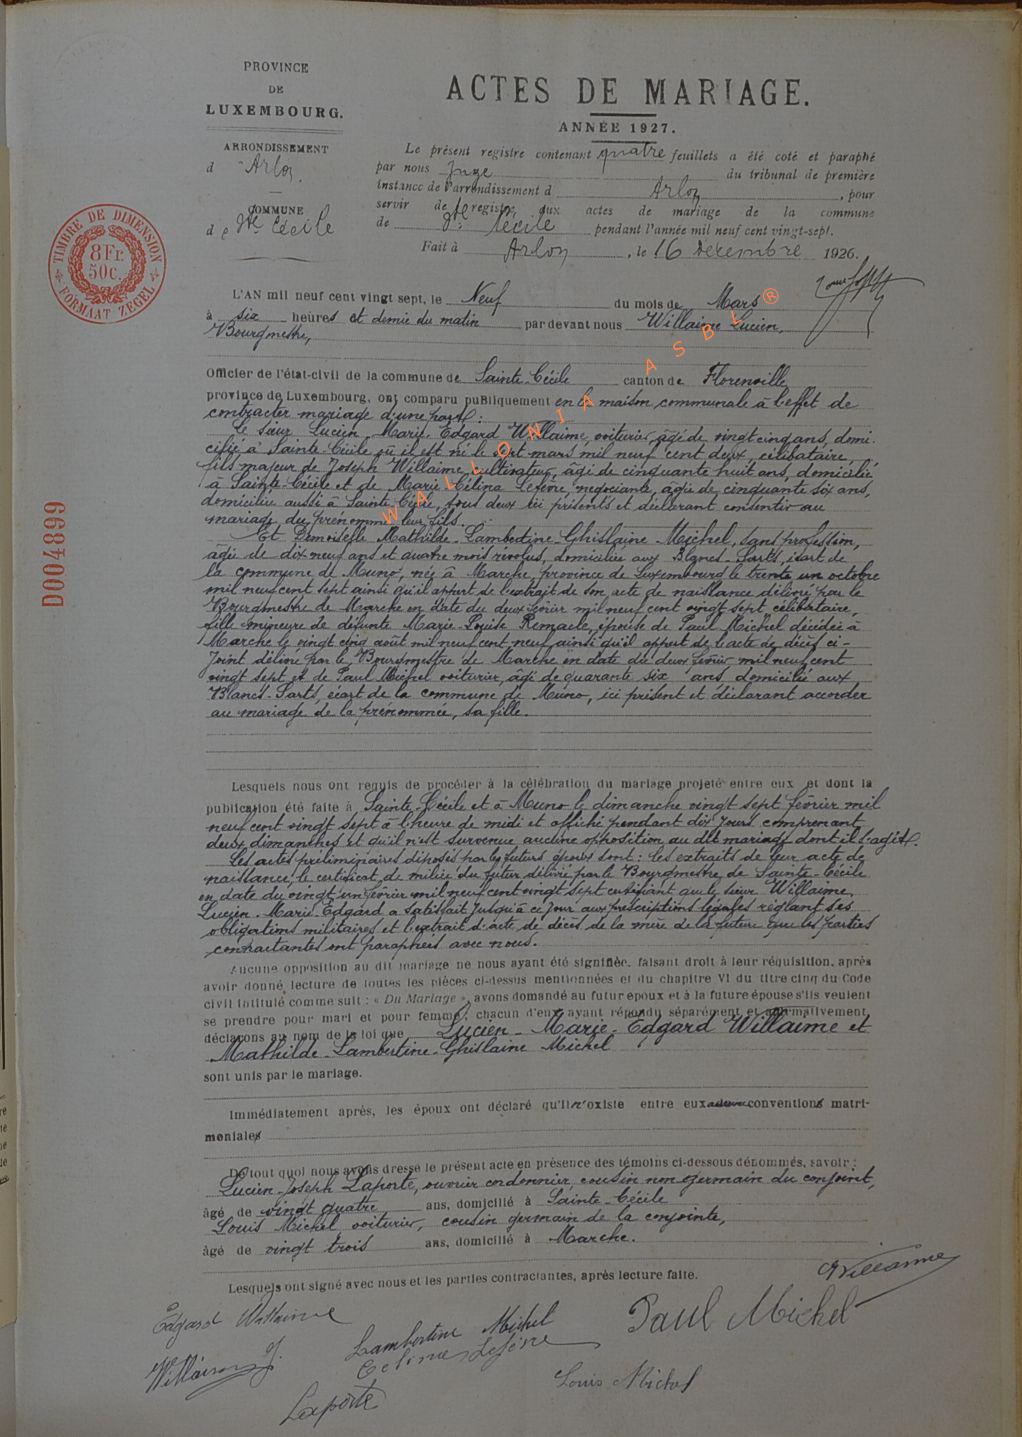 PROVINCE
DE
LUXEMBOURG.
ARRONDISSEMENT
d'Arlon.
COMMUNE
de Ste Cécile
TIMBRE DE DIMENSION
8 Fr.
50c.
FORMAAT ZEGEL
D004899
ACTES DE MARIAGE.
ANNÉE 1927.
Le présent registre contenant quatre feuillets a été coté et paraphé
par nous Juge du tribunal de première
instance de l'arrondissement d Arlon, pour
servir de registre aux actes de mariage de la commune
de Ste Cécile pendant l'année mil neuf cent vingt-sept.
Fait à Arlon, le 16 Decembre 1926.
L'AN mil neuf cent vingt sept, le Neuf du mois de Mars
à six heures et demie du matin par devant nous Willaime Lucien,
Bourgmestre,
Officier de l'état-civil de la commune de Sainte-Cécile canton de Florenville
province de Luxembourg, ont comparu publiquement en la maison communale à l'effet de
contracter mariage d'une part :
Le sieur Lucien-Marie-Edgard Willaime, voiturier, âgé de vingt cinq ans, domi-
cilié à Sainte-Cécile où il est né le sept mars mil neuf cent deux, célibataire,
fils majeur de Joseph Willaime, cultivateur, âgé de cinquante huit ans, domicilié
à Sainte-Cécile et de Marie-Célina Lefèvre, négociante, âgée de cinquante six ans,
domiciliée aussi à Sainte-Cécile, tous deux ici présents et déclarant consentir au
mariage du prénommé leur fils.
Et Demoiselle Mathilde-Lambertine-Ghislaine Michel, sans profession,
âgée de dix neuf ans et quatre mois révolus, domiciliée aux Blancs-Sarts, écart de
la commune de Muno, née à Marche, province de Luxembourg le trente un octobre
mil neuf cent sept ainsi qu'il appert de l'extrait de son acte de naissance délivré par le
Bourgmestre de Marche en date du deux février mil neuf cent vingt sept célibataire,
fille mineure de défunte Marie-Louise Remacle, épouse de Paul Michel décédée à
Marche le vingt cinq août mil neuf cent neuf ainsi qu'il appert de l'acte de décès ci-
joint délivré par le Bourgmestre de Marche en date du deux février mil neuf cent
vingt sept et de Paul Michel voiturier, âgé de quarante six ans domicilié aux
Blancs-Sarts, écart de la commune de Muno, ici présent et déclarant accorder
au mariage de la prénommée, sa fille.
Lesquels nous ont requis de procéder à la célébration du mariage projeté entre eux et dont la
publication été faite à Sainte-Cécile et à Muno le dimanche vingt sept février mil
neuf cent vingt sept à l'heure de midi et affiché pendant dix jours comprenant
deux dimanches et qu'il n'est survenue aucune opposition au dit mariage dont il s'agit.
Les actes préliminaires déposés par les futurs époux sont : les extraits de leur acte de
naissance, le certificat de milice du futur délivré par le Bourgmestre de Sainte-Cécile
en date du vingt un février mil neuf cent vingt sept certifiant que le sieur Willaime
Lucien-Marie-Edgard a satisfait jusqu'à ce jour aux prescriptions légales réglant ses
obligations militaires et l'extrait d'acte de décès de la mère de la future que les parties
contractantes ont paraphées avec nous.
Aucune opposition au dit mariage ne nous ayant été signifiée, faisant droit à leur réquisition, après
avoir donné lecture de toutes les pièces ci-dessus mentionnées et du chapitre VI du titre cinq du Code
civil intitulé comme suit : « Du Mariage », avons demandé au futur époux et à la future épouse s'ils veulent
se prendre pour mari et pour femme, chacun d'eux ayant répondu séparément et affirmativement,
déclarons au nom de la loi que Lucien-Marie-Edgard Willaime et
Mathilde-Lambertine-Ghislaine Michel
sont unis par le mariage.
Immédiatement après, les époux ont déclaré qu'il n'existe entre eux conventions matri-
moniales
De tout quoi nous avons dressé le présent acte en présence des témoins ci-dessous dénommés, savoir :
Lucien-Joseph Laporte, ouvrier cordonnier, cousin non germain du conjoint,
âgé de vingt quatre ans, domicilié à Sainte-Cécile
Louis Michel voiturier, cousin germain de la conjointe,
âgé de vingt trois ans, domicilié à Marche.
Lesquels ont signé avec nous et les parties contractantes, après lecture faite.
Willaime
Edgard Willaime
Lambertine Michel
Paul Michel
Willaime J.
Celina Lefèvre
Louis Michel
Laporte
WALLONIA ASBL ®